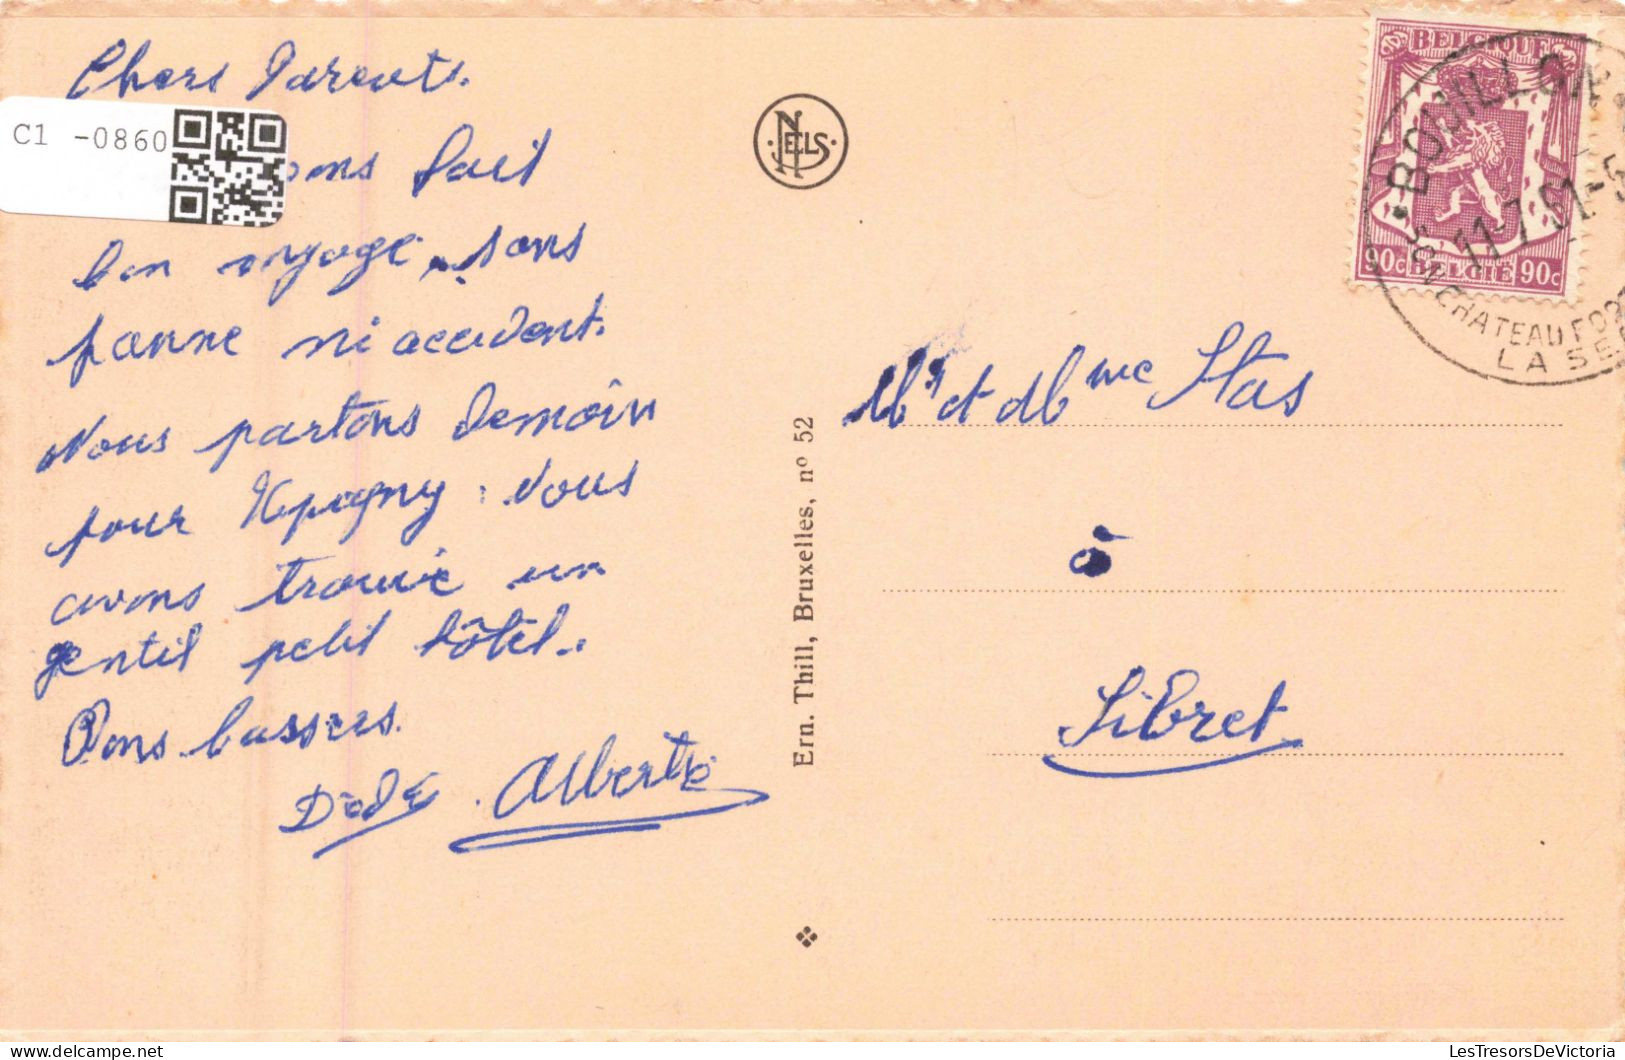 Chers Parents.
C1 -0860
ons fait
bon voyage, sans
panne ni accident.
Nous partons demain
pour Nous
avons trouvé un
gentil petit hôtel.
Bons bassers.
Dédé. Alberte
NELS
Ern. Thill, Bruxelles, nº 52
BELGIQUE
90c BELGIË 90c
BOUILLON
11-7 51
SON CHATEAU FORT
LA SE
Mr et Mme Stas
à
Sibret
LesTresorsDeVictoria